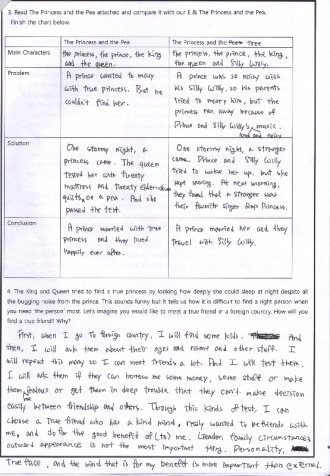 3. Read The Princess and the Pea attached and compare it with our E.& The Princess and the Pea.
Finish the chart below.
The Princess and the Pea
The Princess and the Pea tree
Main Characters
the princess, the prince, the king
and the queen.
the princess, the prince, the king,
the queen and Silly Willy.
Problem
A prince wanted to marry
with true princess. But he
couldn't find her.
A prince was so noisy with
his Silly Willy, so his parents
tried to marry him, but the
princess ran away because of
Prince and Silly Willy's music.
loud and noisy
Solution
One stormy night, a
princess came. The queen
tested her with twenty
mattress and twenty eider-down
quilts, on a pea. And she
passed the test.
One stormy night, a stranger
came. Prince and Silly Willy
tried to wake her up, but she
kept snoring. At next morning,
they found that a stranger was
their favorite singer Rap Princess.
Conclusion
A prince married with true
princess and they lived
happily ever after.
A prince married her and they
travel with Silly Willy.
4. The King and Queen tried to find a true princess by looking how deeply she could sleep at night despite all
the bugging noise from the prince. This sounds funny but it tells us how it is difficult to find a right person when
you need 'the person' most. Let's imagine you would like to meet a true friend in a foreign country. How will you
find a true friend? Why?
First, when I go to foreign country, I will find some kids. And
then, I will ask them about their ages and name and other stuff. I
will repeat this many so I can meet friends a lot. And I will test them.
I will ask them if they can borrow me some money, some stuff or make
them jealous or get them in deep trouble that they can't make decision
me
easily between friendship and others. Through this kinds of test, I can
choose a true friend who has a kind mind, really wanted to be friends with
me, and do for the good benefit of (to) me. Gender, family circumstances,
outward appearance is not the most important thing. Personality,
True face, and the mind that is for my benefit is more important than external